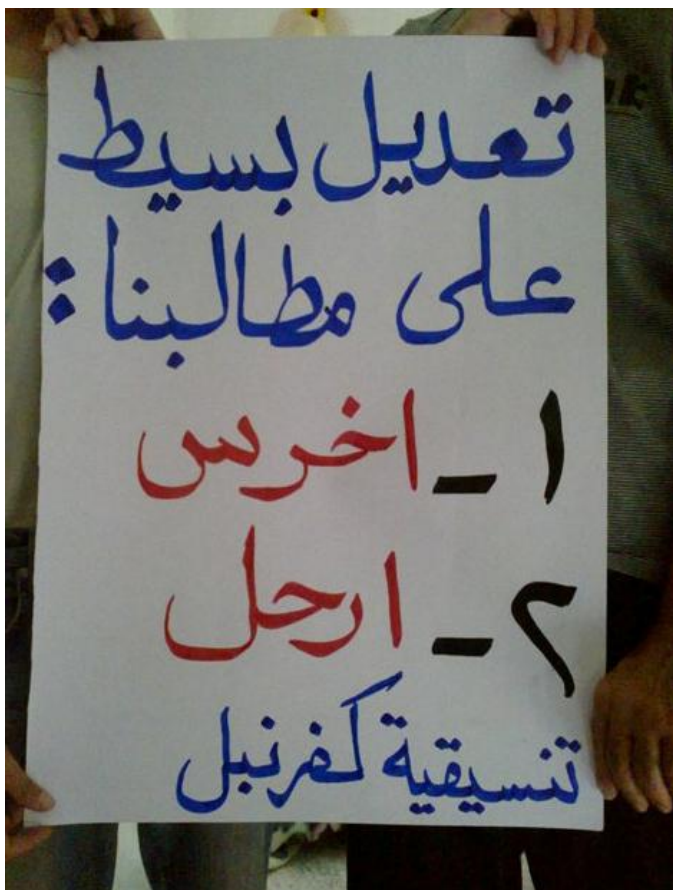 تعديل بسيط
على مطالبنا :
١ - اخرس
٢ - ارحل
تنسيقية كفرنبل